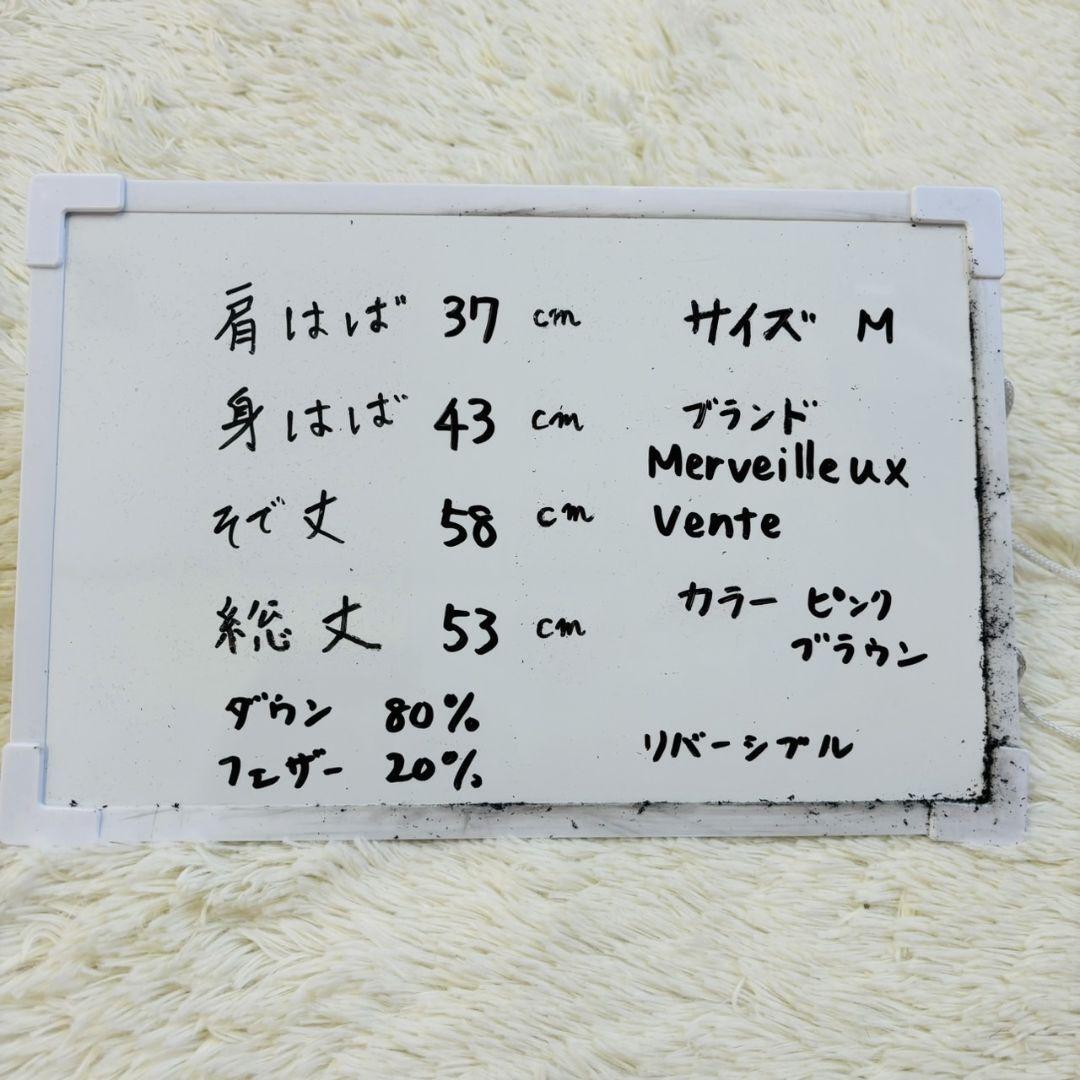 肩はば 37 cm
身はば 43 cm
そで丈 58 cm
総丈 53 cm
ダウン 80%
フェザー 20%
サイズ M
ブランド
Merveilleux
Vente
カラー ピンク
ブラウン
リバーシブル